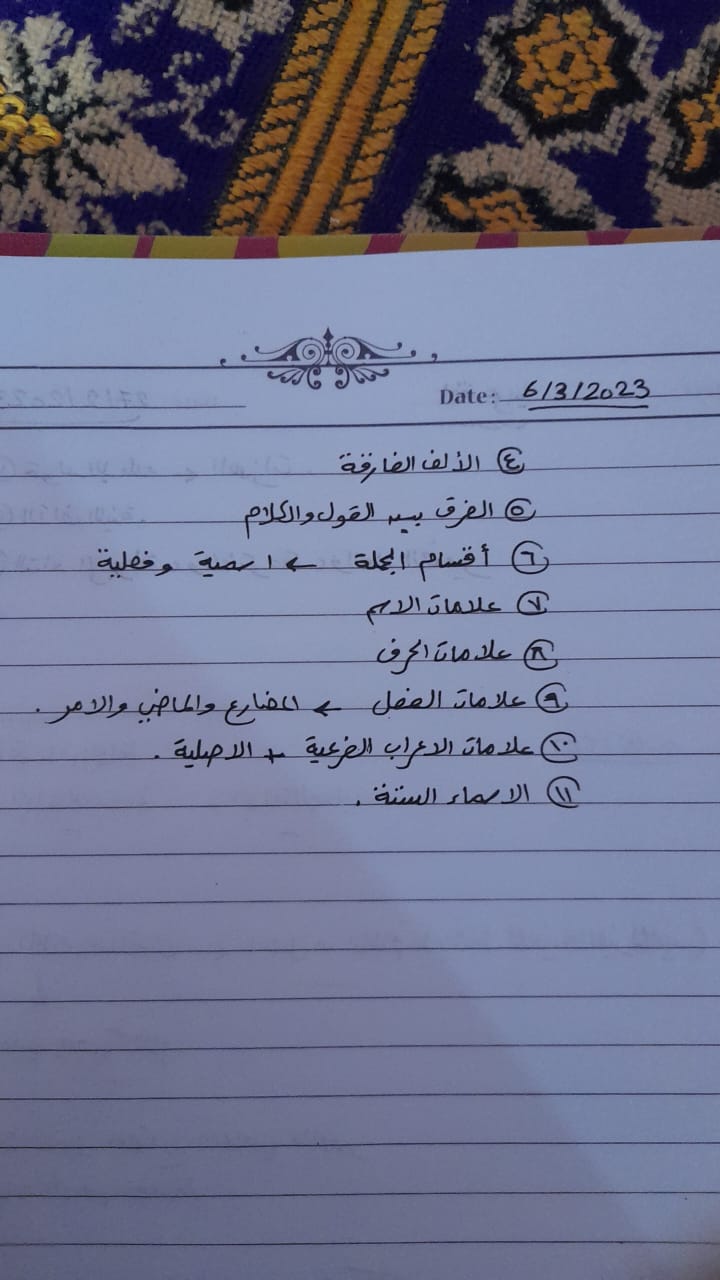 Date: 6/3/2023
٤ الألف الفارقة
٥ الفرق بين القول والكلام
٦ أقسام الجملة ← اسمية وفعلية
٧ علامات الاسم
٨ علامات الحرف
٩ علامات الفعل ← المضارع والماضي والامر .
١٠ علامات الاعراب الفرعية + الاصلية .
١١ الاسماء الستة .